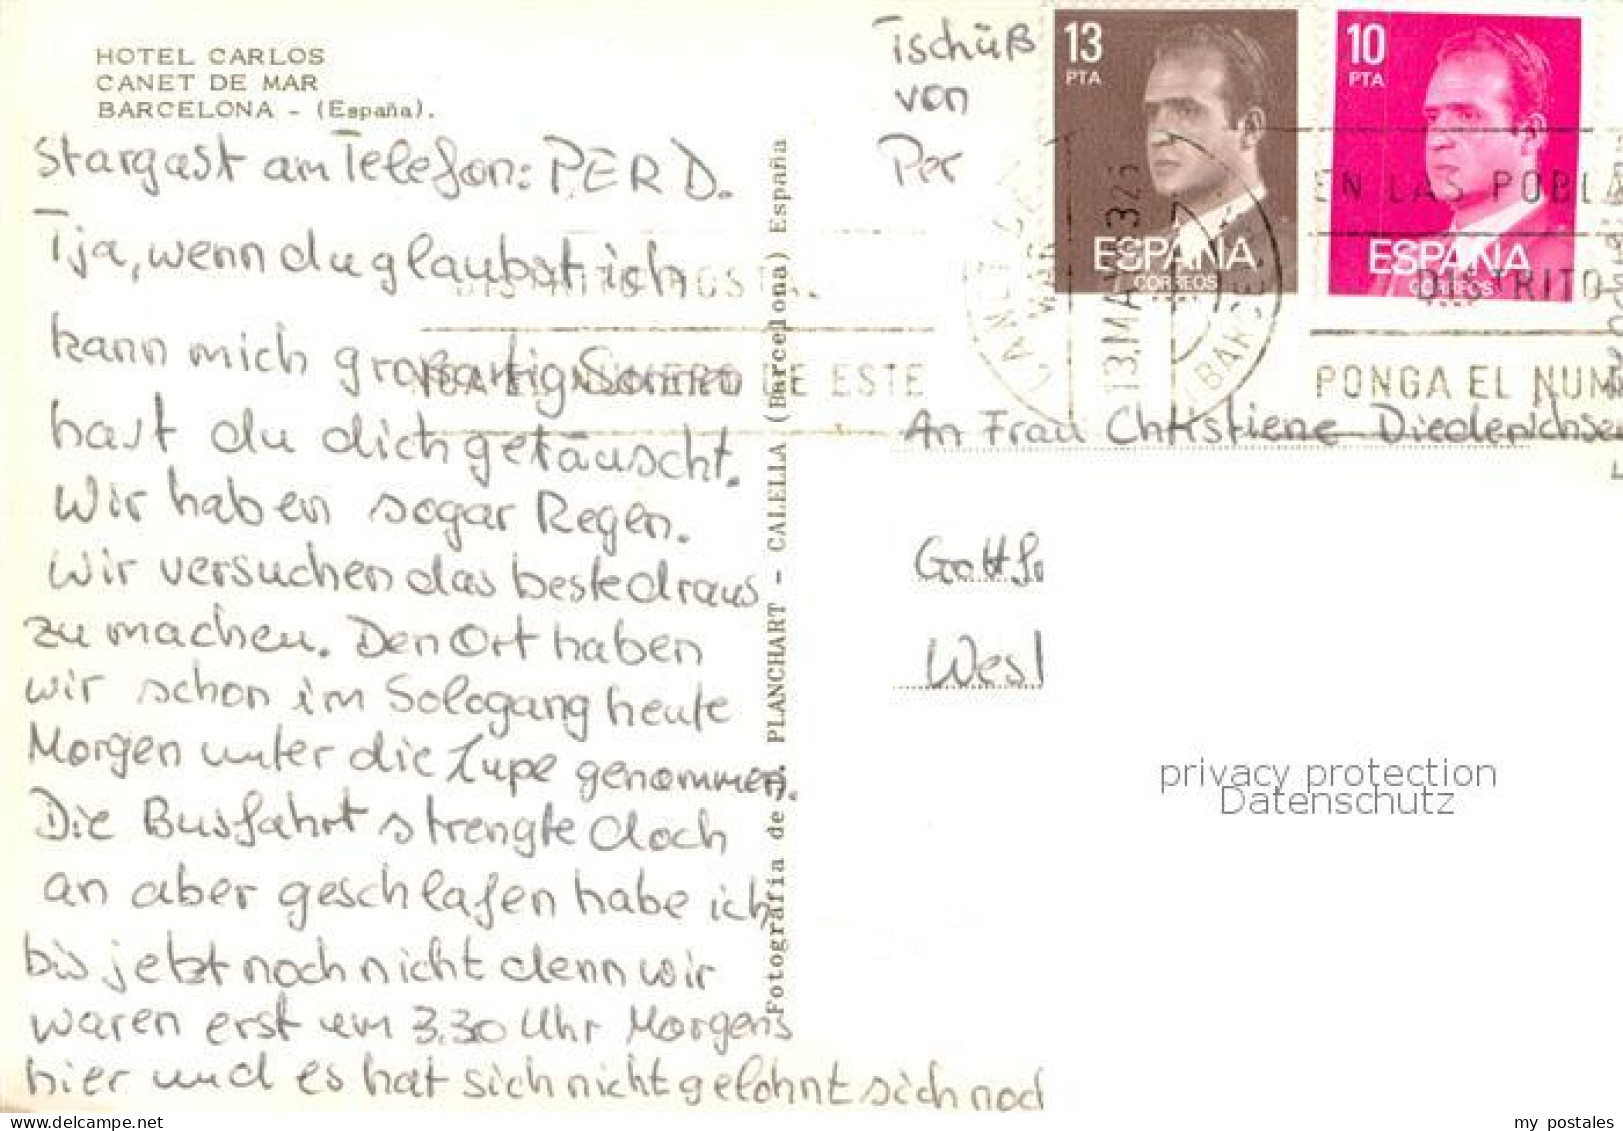 HOTEL CARLOS
CANET DE MAR
BARCELONA - (España).
Stargast am Telefon: PER D.
Tja, wenn du glaubst ich
kann mich großartig Sonnen
hast du dich getäuscht.
Wir haben sogar Regen.
Wir versuchen das beste draus
zu machen. Den Ort haben
wir schon im Sologang heute
Morgen unter die Lupe genommen.
Die Busfahrt strengte doch
an aber geschlafen habe ich
bis jetzt noch nicht denn wir
waren erst um 3.30 Uhr Morgens
hier und es hat sich nicht gelohnt sich noch
Fotografía de J. PLANCHART - CALELLA (Barcelona) España
Tschüß
von
Per
13
PTA
ESPAÑA
CORREOS
10
PTA
ESPAÑA
CORREOS
EN LAS POBLA
DISTRITO
PONGA EL NUM
DISTRITO POSTAL
NUMERO DE ESTE
CANET DE MAR
13.MAY
An Frau Christiene Diederichsen
Gottf
West
privacy protection
Datenschutz
my_postales